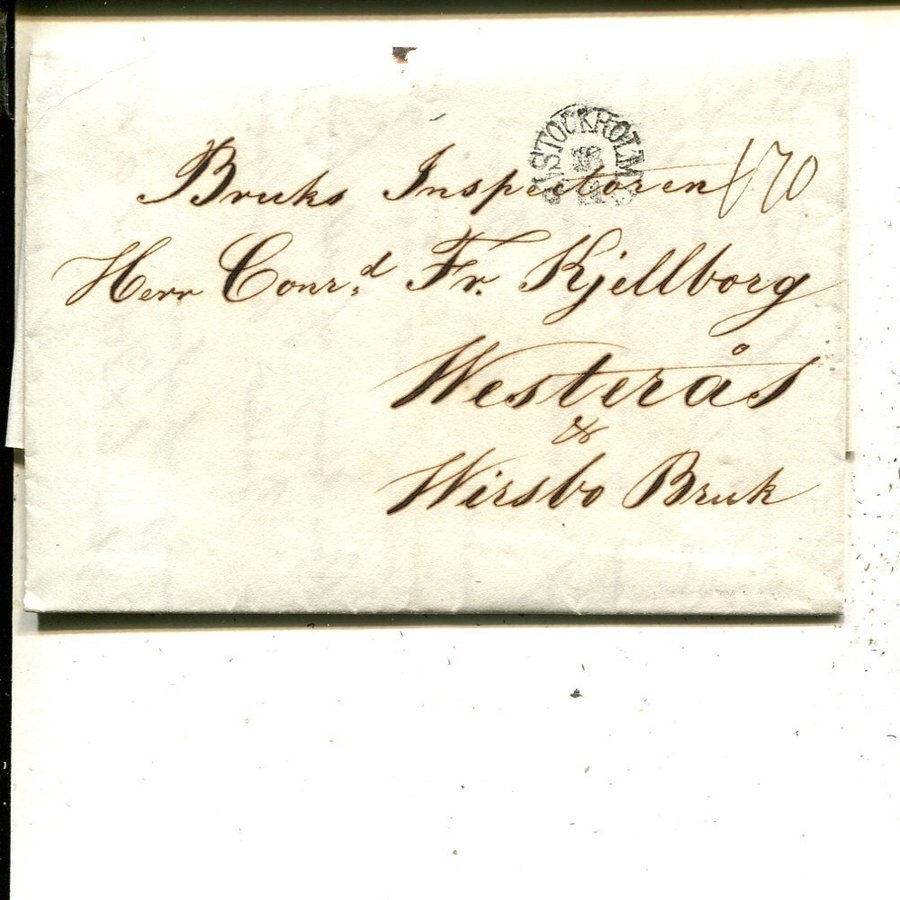 STOCKHOLM
Bruks Inspectoren
Herr Conr.d Fr. Kjellborg
Westerås
&
Wirsbo Bruk